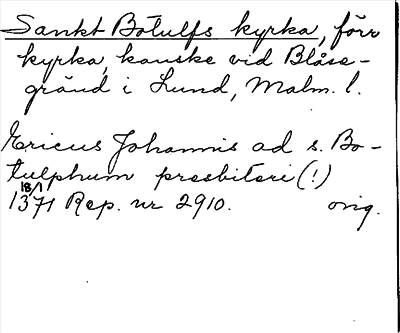 Sankt Botulfs kyrka, förr
kyrka, kanske vid Blåse-
gränd i Lund, Malm. l.
Ericus Johannis ad s. Bo-
tulphum presbiteri (!)
18/1
1371 Rep. nr 2910. orig.